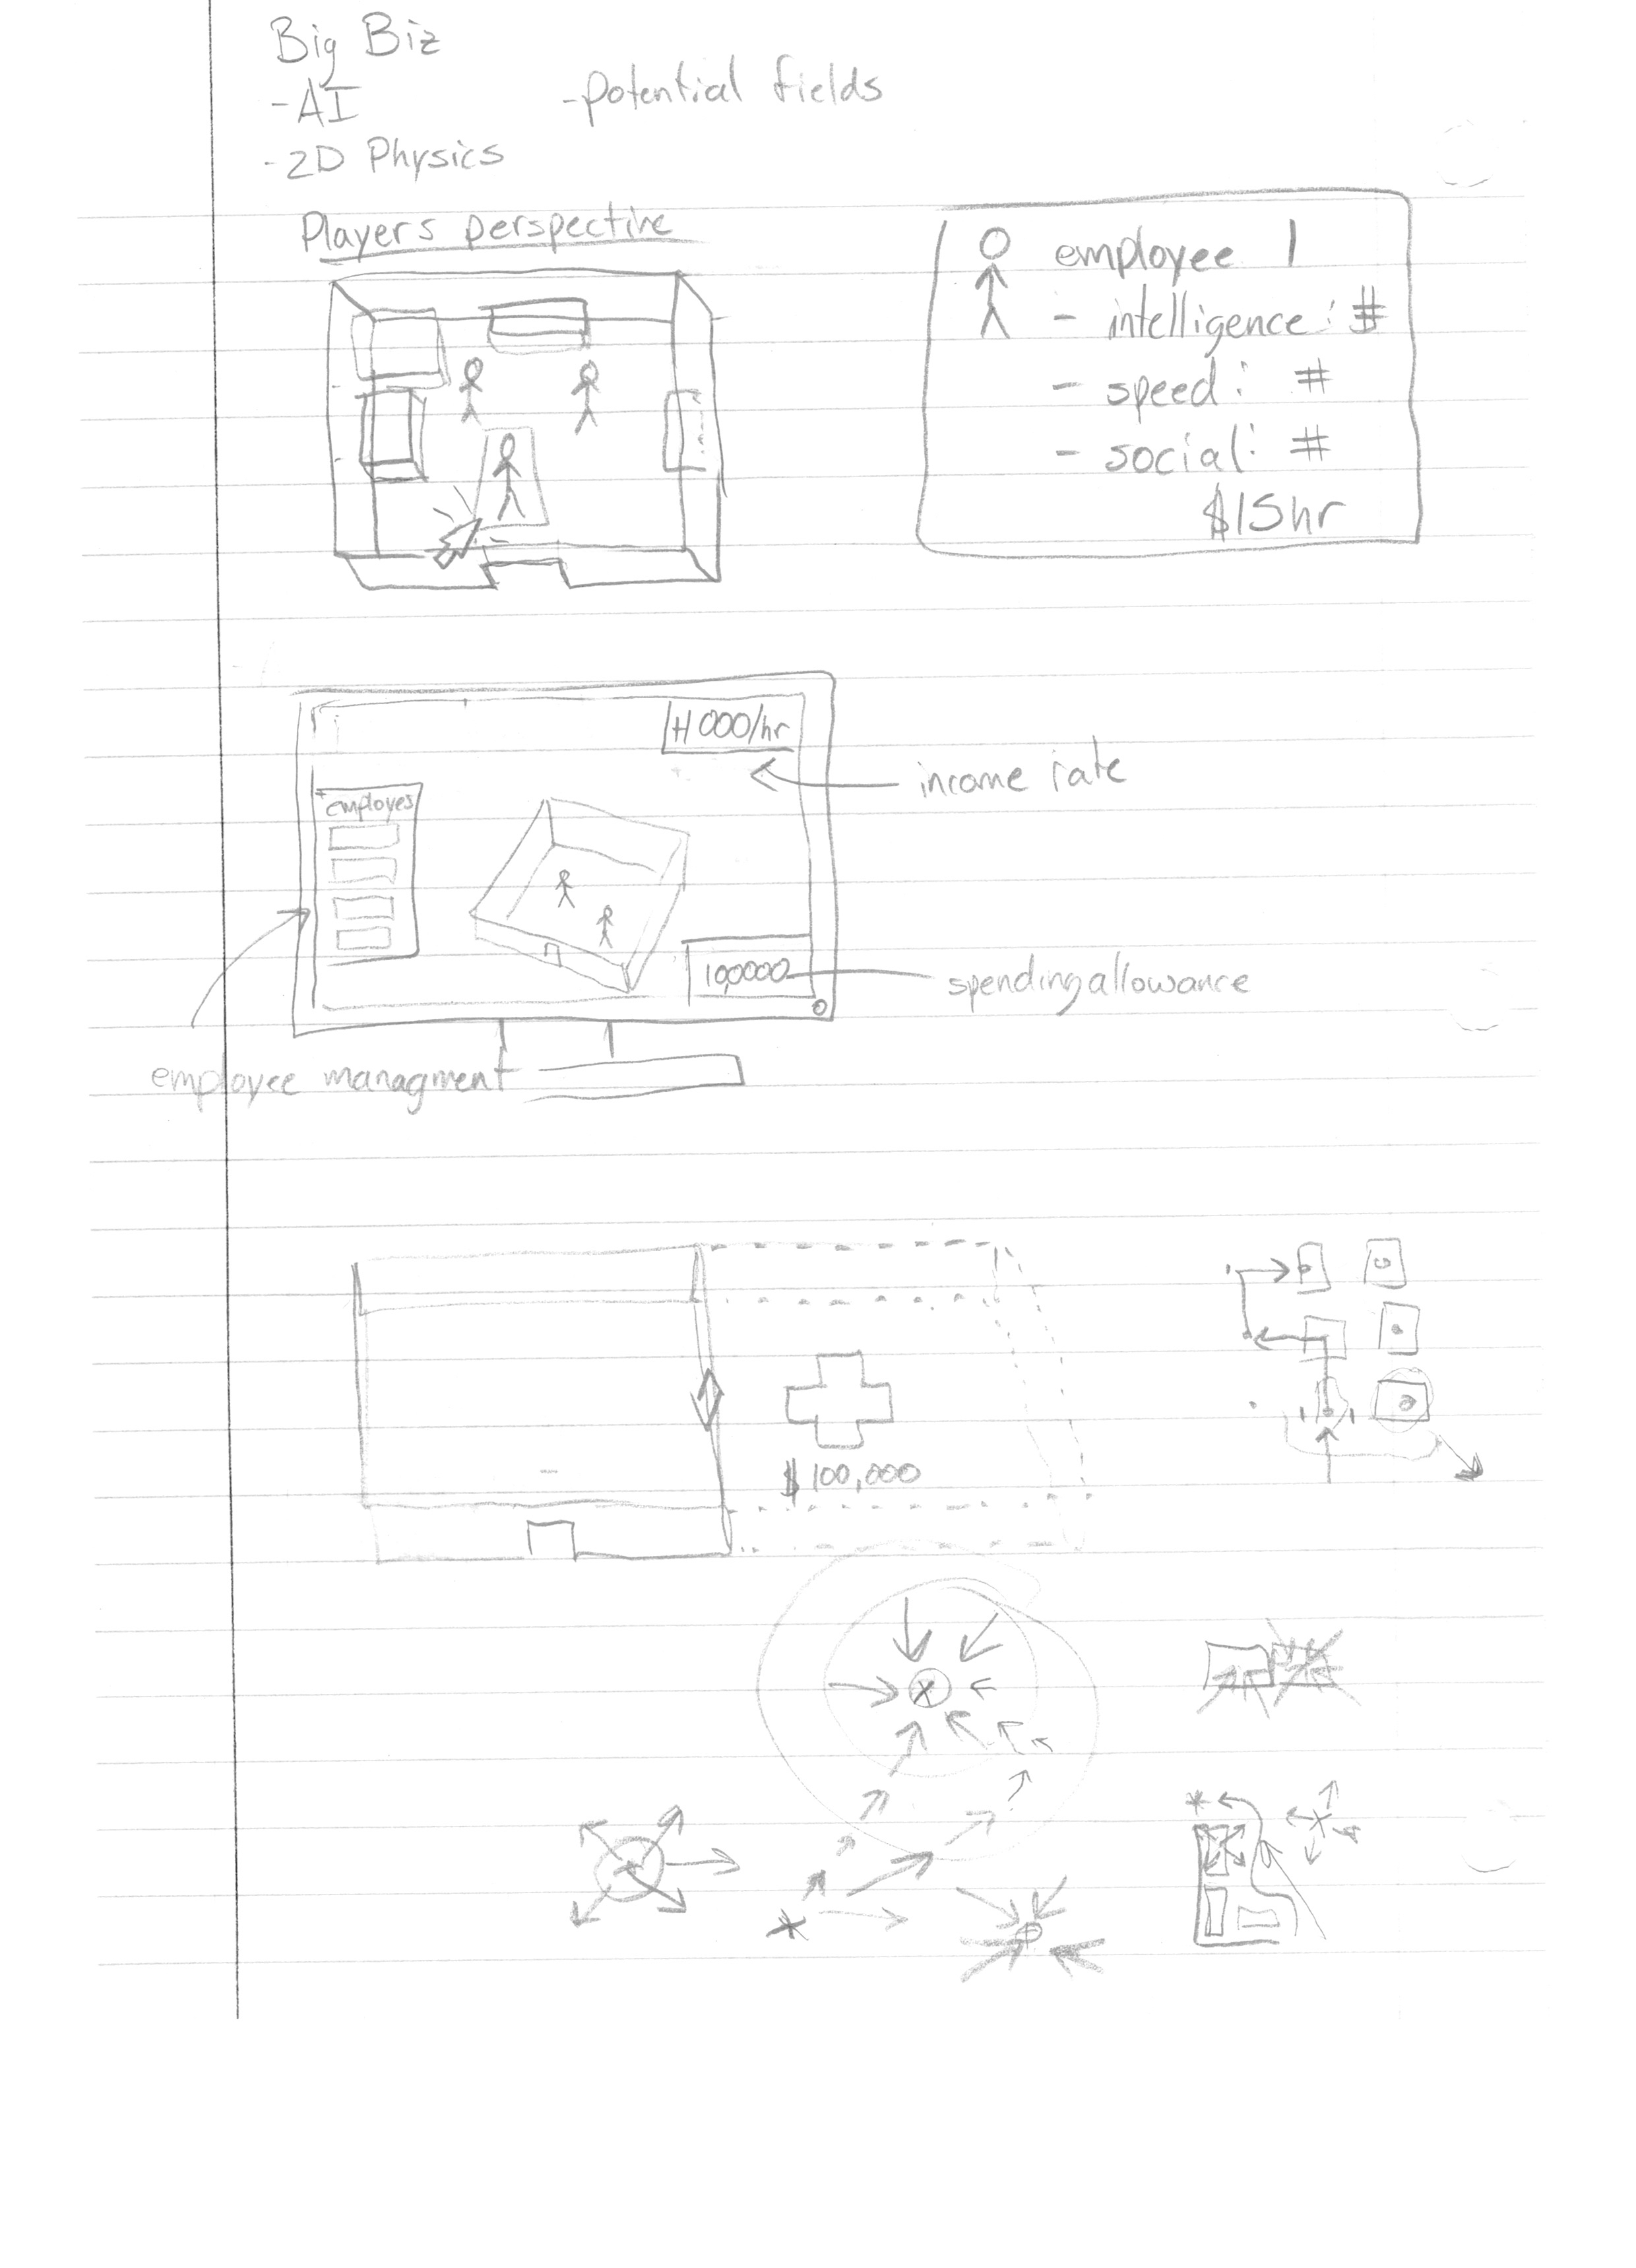 Big Biz
-AI
-potential fields
-2D Physics
Players perspective
employee 1
- intelligence: #
- speed: #
- social: #
$15hr
000/hr
income rate
employes
100000
spending allowance
employee managment
$100,000